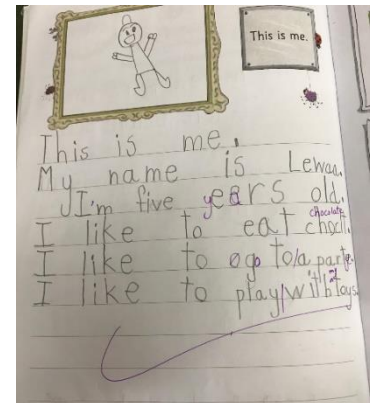 This is me.
This is me.
My name is Lewan.
I'm five years old.
chocolate
I like to eat chocl.
I like to go to a party.
I like to play with toys.